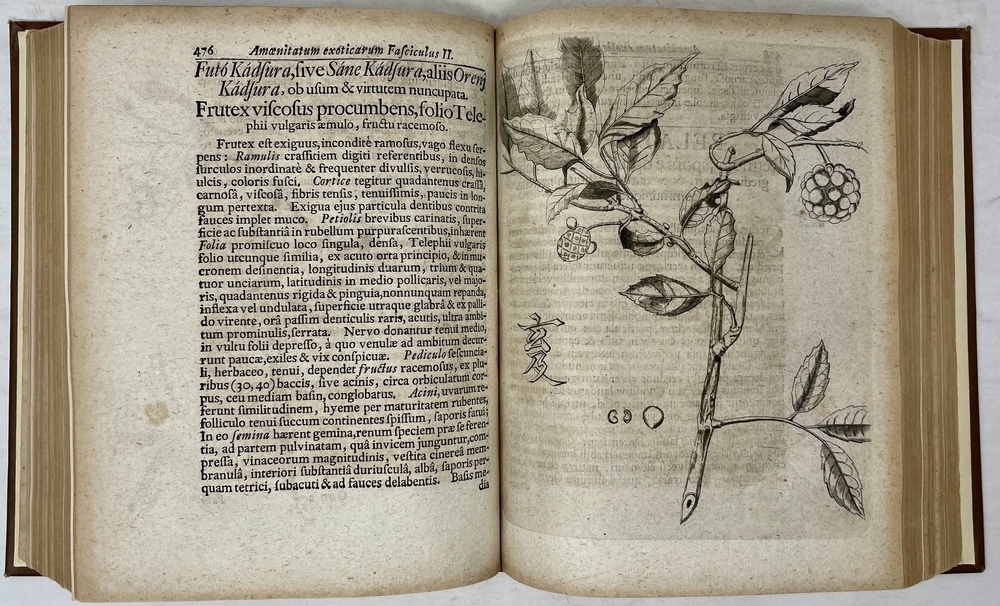 476 Amœnitatum exoticarum Fasciculus II.
Futó Kádſura, ſive Sáne Kádſura, aliis Orenj
Kádſura, ob uſum & virtutem nuncupata.
Frutex viſcoſus procumbens, folio Tele-
phii vulgaris æmulo, fructu racemoſo.
Frutex eſt exiguus, inconditè ramoſus, vago flexu ſer-
pens: Ramulis craſſitiem digiti referentibus, in denſos
ſurculos inordinatè & frequenter divulſis, verrucoſis, hi-
ulcis, coloris fuſci. Cortice tegitur quadantenus craſſâ,
carnoſâ, viſcoſâ, fibris tenſis, tenuiſſimis, paucis in lon-
gum pertexta. Exigua ejus particula dentibus contrita
fauces implet muco. Petiolis brevibus carinatis, ſuper-
ficie ac ſubſtantiâ in rubellum purpuraſcentibus, inhærent
Folia promiſcuo loco ſingula, denſa, Telephii vulgaris
folio utcunque ſimilia, ex acuto orta principio, & in mu-
cronem deſinentia, longitudinis duarum, trium & qua-
tuor unciarum, latitudinis in medio pollicaris, vel majo-
ris, quadantenus rigida & pinguia, nonnunquam repanda,
inflexa vel undulata, ſuperficie utraque glabrâ & ex palli-
do virente, orâ paſſim denticulis raris, acutis, ultra ambi-
tum prominulis, ſerrata. Nervo donantur tenui medio,
in vultu folii depreſſo, à quo venulæ ad ambitum decur-
runt paucæ, exiles & vix conſpicuæ. Pediculo ſeſcuncia-
li, herbaceo, tenui, dependet fructus racemoſus, ex plu-
ribus (30, 40) baccis, ſive acinis, circa orbiculatum cor-
pus, ceu mediam baſin, conglobatus. Acini, uvarum re-
ferunt ſimilitudinem, hyeme per maturitatem rubentes,
folliculo tenui ſuccum continentes ſpiſſum, ſaporis fatui;
In eo ſemina hærent gemina, renum ſpeciem præ ſe feren-
tia, ad partem pulvinatam, quâ invicem junguntur, com-
preſſa, vinaceorum magnitudinis, veſtita cinereâ mem-
branulâ, interiori ſubſtantiâ duriuſculâ, albâ, ſaporis per-
quam tetrici, ſubacuti & ad fauces delabentis. Baſis me-
dia